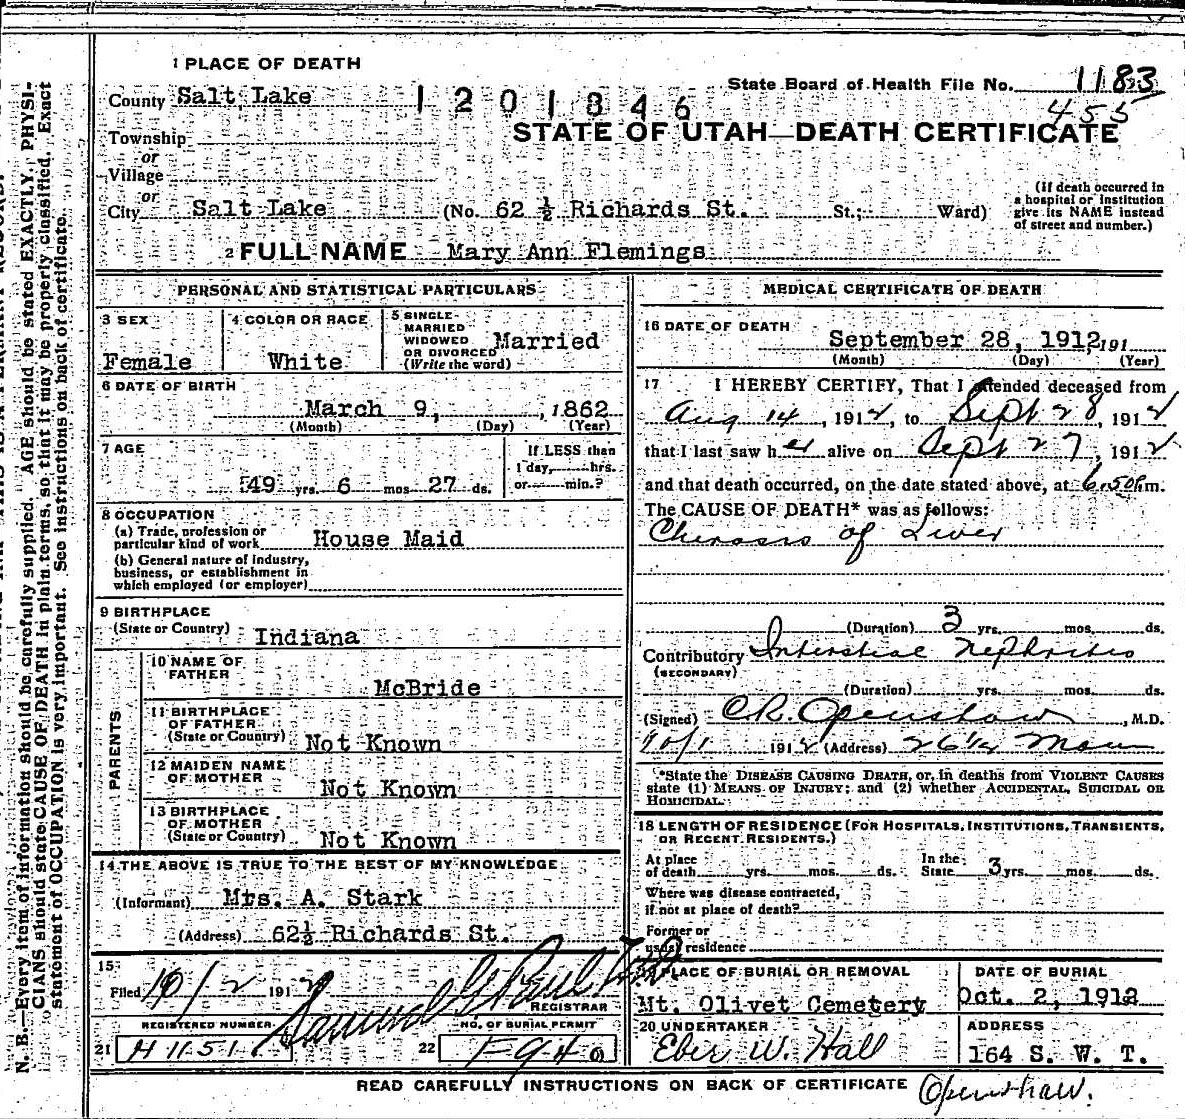 1 PLACE OF DEATH
County Salt Lake
1201846
State Board of Health File No. 1183
455
STATE OF UTAH—DEATH CERTIFICATE
Township
or
Village
or
City Salt Lake (No. 62 ½ Richards St. St.; Ward)
(If death occurred in a hospital or institution give its NAME instead of street and number.)
2 FULL NAME Mary Ann Flemings
PERSONAL AND STATISTICAL PARTICULARS
3 SEX Female
4 COLOR OR RACE White
5 SINGLE MARRIED WIDOWED OR DIVORCED (Write the word) Married
6 DATE OF BIRTH
March 9, , 1862
(Month) (Day) (Year)
7 AGE
49 yrs. 6 mos 27 ds.
If LESS than
1 day, hrs.
or min.?
8 OCCUPATION
(a) Trade, profession or
particular kind of work House Maid
(b) General nature of industry,
business, or establishment in
which employed (or employer)
9 BIRTHPLACE
(State or Country) Indiana
PARENTS
10 NAME OF
FATHER McBride
11 BIRTHPLACE
OF FATHER
(State or Country) Not Known
12 MAIDEN NAME
OF MOTHER Not Known
13 BIRTHPLACE
OF MOTHER
(State or Country) Not Known
14 THE ABOVE IS TRUE TO THE BEST OF MY KNOWLEDGE
(Informant) Mrs. A. Stark
(Address) 62½ Richards St.
15
Filed 10/2 1912
REGISTRAR
REGISTERED NUMBER
21 H 1151
NO. OF BURIAL PERMIT
22 F940
MEDICAL CERTIFICATE OF DEATH
16 DATE OF DEATH
September 28, 1912, 191
(Month) (Day) (Year)
17 I HEREBY CERTIFY, That I attended deceased from
Aug 14, 1912, to Sept 28, 1912
that I last saw her alive on Sept 27, 1912
and that death occurred, on the date stated above, at 6.50 Pm.
The CAUSE OF DEATH* was as follows:
of Liver
(Duration) 3 yrs. mos. ds.
Contributory Nephritis
(SECONDARY)
(Duration) yrs. mos. ds.
(Signed) C.R. Openshaw, M.D.
10/1 1912 (Address) 26½ Main
*State the DISEASE CAUSING DEATH, or, in deaths from VIOLENT CAUSES
state (1) MEANS OF INJURY; and (2) whether ACCIDENTAL, SUICIDAL OR
HOMICIDAL.
18 LENGTH OF RESIDENCE (FOR HOSPITALS, INSTITUTIONS, TRANSIENTS,
OR RECENT RESIDENTS.)
At place
of death yrs. mos. ds.
In the
State 3 yrs. mos. ds.
Where was disease contracted,
if not at place of death?
Former or
usual residence
19 PLACE OF BURIAL OR REMOVAL
Mt. Olivet Cemetery
DATE OF BURIAL
Oct. 2, 1912
20 UNDERTAKER
Eber W. Hall
ADDRESS
164 S. W. T.
READ CAREFULLY INSTRUCTIONS ON BACK OF CERTIFICATE Openshaw.
N. B.—Every item of information should be carefully supplied. AGE should be stated EXACTLY. PHYSI-
CIANS should state CAUSE OF DEATH in plain terms, so that it may be properly classified. Exact
statement of OCCUPATION is very important. See instructions on back of certificate.